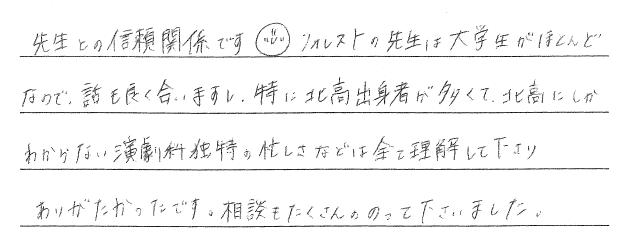 先生との信頼関係です☺ フォレストの先生は大学生がほとんど
なので、話も良く合いますし、特に北高出身者が多くて、北高にしか
わからない演劇科独特の忙しさなどは全て理解して下さり
ありがたかったです。相談もたくさんのって下さいました。